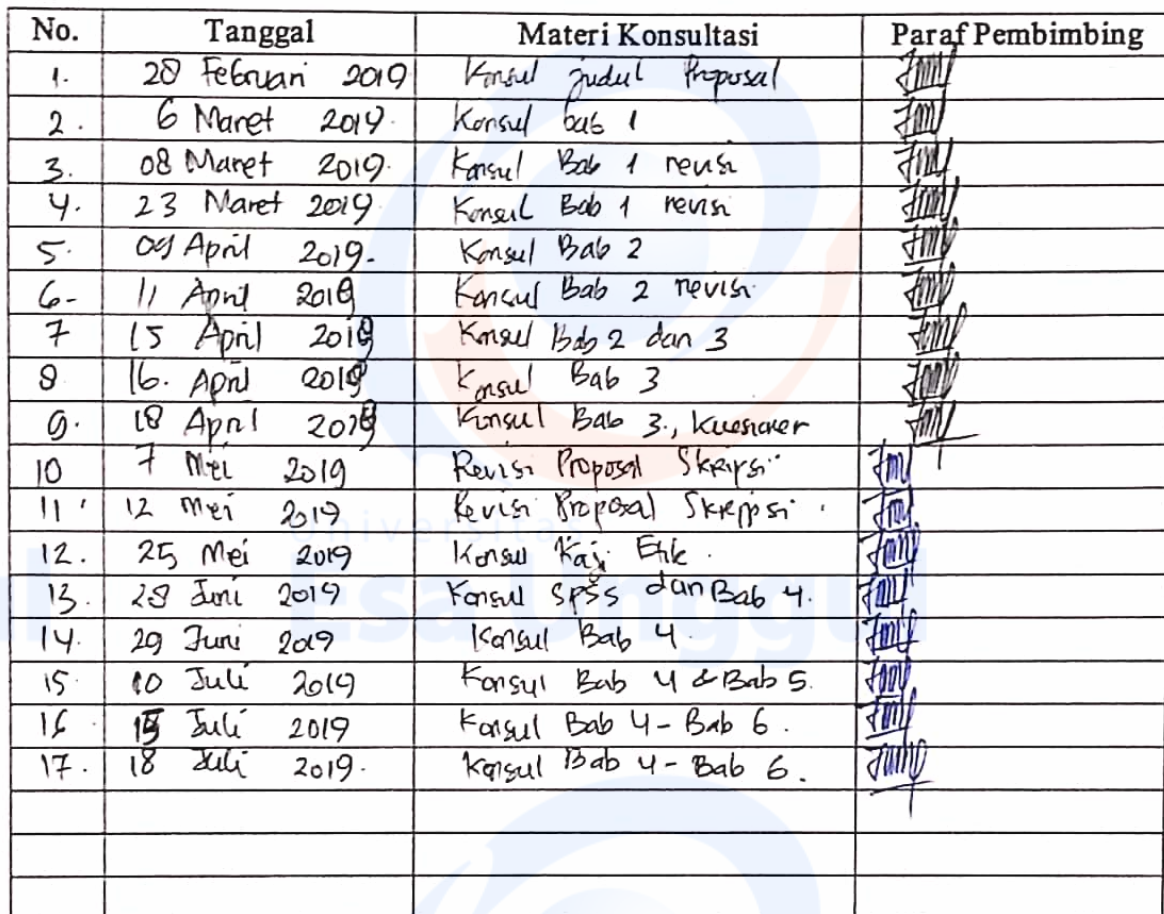 No. Tanggal Materi Konsultasi Paraf Pembimbing
1. 28 Februari 2019 Konsul judul Proposal
2. 6 Maret 2019. Konsul bab 1
3. 08 Maret 2019. Konsul Bab 1 revisi
4. 23 Maret 2019. Konsul Bab 1 revisi
5. 09 April 2019. Konsul Bab 2
6- 11 April 2019 Konsul Bab 2 revisi
7 15 April 2019 Konsul Bab 2 dan 3
8 16. April 2019 Konsul Bab 3
9. 18 April 2019 Konsul Bab 3., Kuesioner
10 7 Mei 2019 Revisi Proposal Skripsi
11 12 Mei 2019 Revisi Proposal Skripsi
Universitas
12. 25 Mei 2019 Konsul Kaji Etik.
13. 28 Juni 2019 Konsul SPSS dan Bab 4.
Esa Unggul
14. 29 Juni 2019 Konsul Bab 4.
15 10 Juli 2019 Konsul Bab 4 & Bab 5.
16 15 Juli 2019 Konsul Bab 4 - Bab 6.
17. 18 Juli 2019. Konsul Bab 4 - Bab 6.